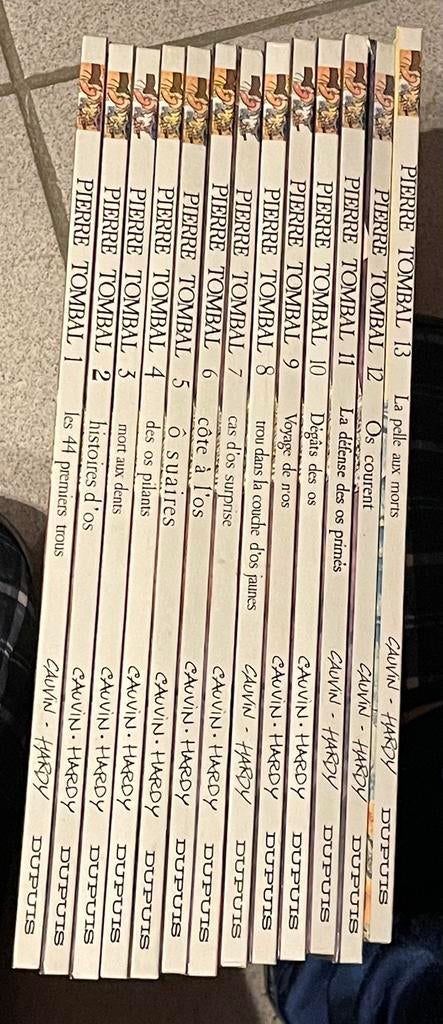 PIERRE TOMBAL 1 les 44 premiers trous CAUVIN - HARDY DUPUIS
PIERRE TOMBAL 2 histoires d'os CAUVIN · HARDY DUPUIS
PIERRE TOMBAL 3 mort aux dents CAUVIN · HARDY DUPUIS
PIERRE TOMBAL 4 des os pilants CAUVIN · HARDY DUPUIS
PIERRE TOMBAL 5 ô suaires CAUVIN · HARDY DUPUIS
PIERRE TOMBAL 6 côte à l'os CAUVIN · HARDY DUPUIS
PIERRE TOMBAL 7 cas d'os surprise CAUVIN · HARDY DUPUIS
PIERRE TOMBAL 8 trou dans la couche d'os jaunes CAUVIN - HARDY DUPUIS
PIERRE TOMBAL 9 Voyage de n'os CAUVIN · HARDY DUPUIS
PIERRE TOMBAL 10 Dégâts des os CAUVIN · HARDY DUPUIS
PIERRE TOMBAL 11 La défense des os primés CAUVIN - HARDY DUPUIS
PIERRE TOMBAL 12 Os courent CAUVIN - HARDY DUPUIS
PIERRE TOMBAL 13 La pelle aux morts CAUVIN - HARDY DUPUIS